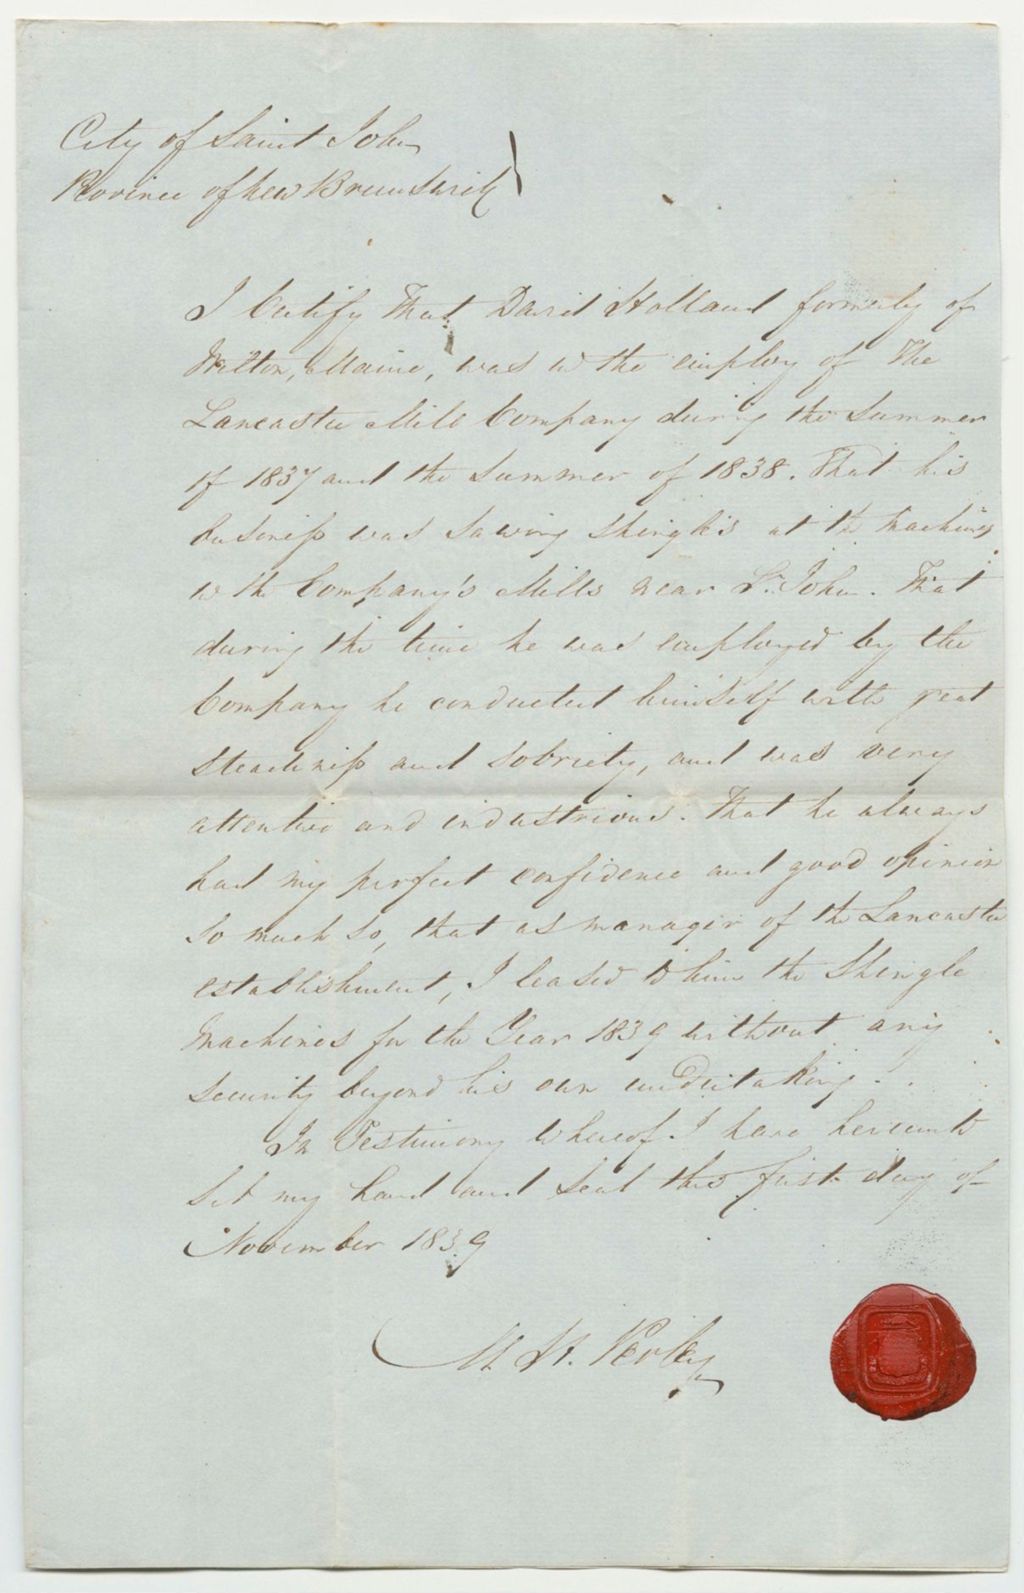 City of Saint John
Province of New Brunswick
I Certify That David Holland formerly of
Wilton, Maine, was in the employ of The
Lancaster Mill Company during the Summer
of 1837 and the Summer of 1838. That his
business was sawing Shingles at the Machines
in the Company's Mills near St. John. That
during the time he was employed by the
Company he conducted himself with great
steadiness and sobriety, and was very
attentive and industrious. That he always
had my perfect confidence and good opinion
so much so, that as manager of the Lancaster
establishment, I leased to him the Shingle
Machines for the Year 1839 without any
security beyond his own undertaking.
In Testimony whereof I have hereunto
Set my hand and Seal this first day of
November 1839
M. H. Perley